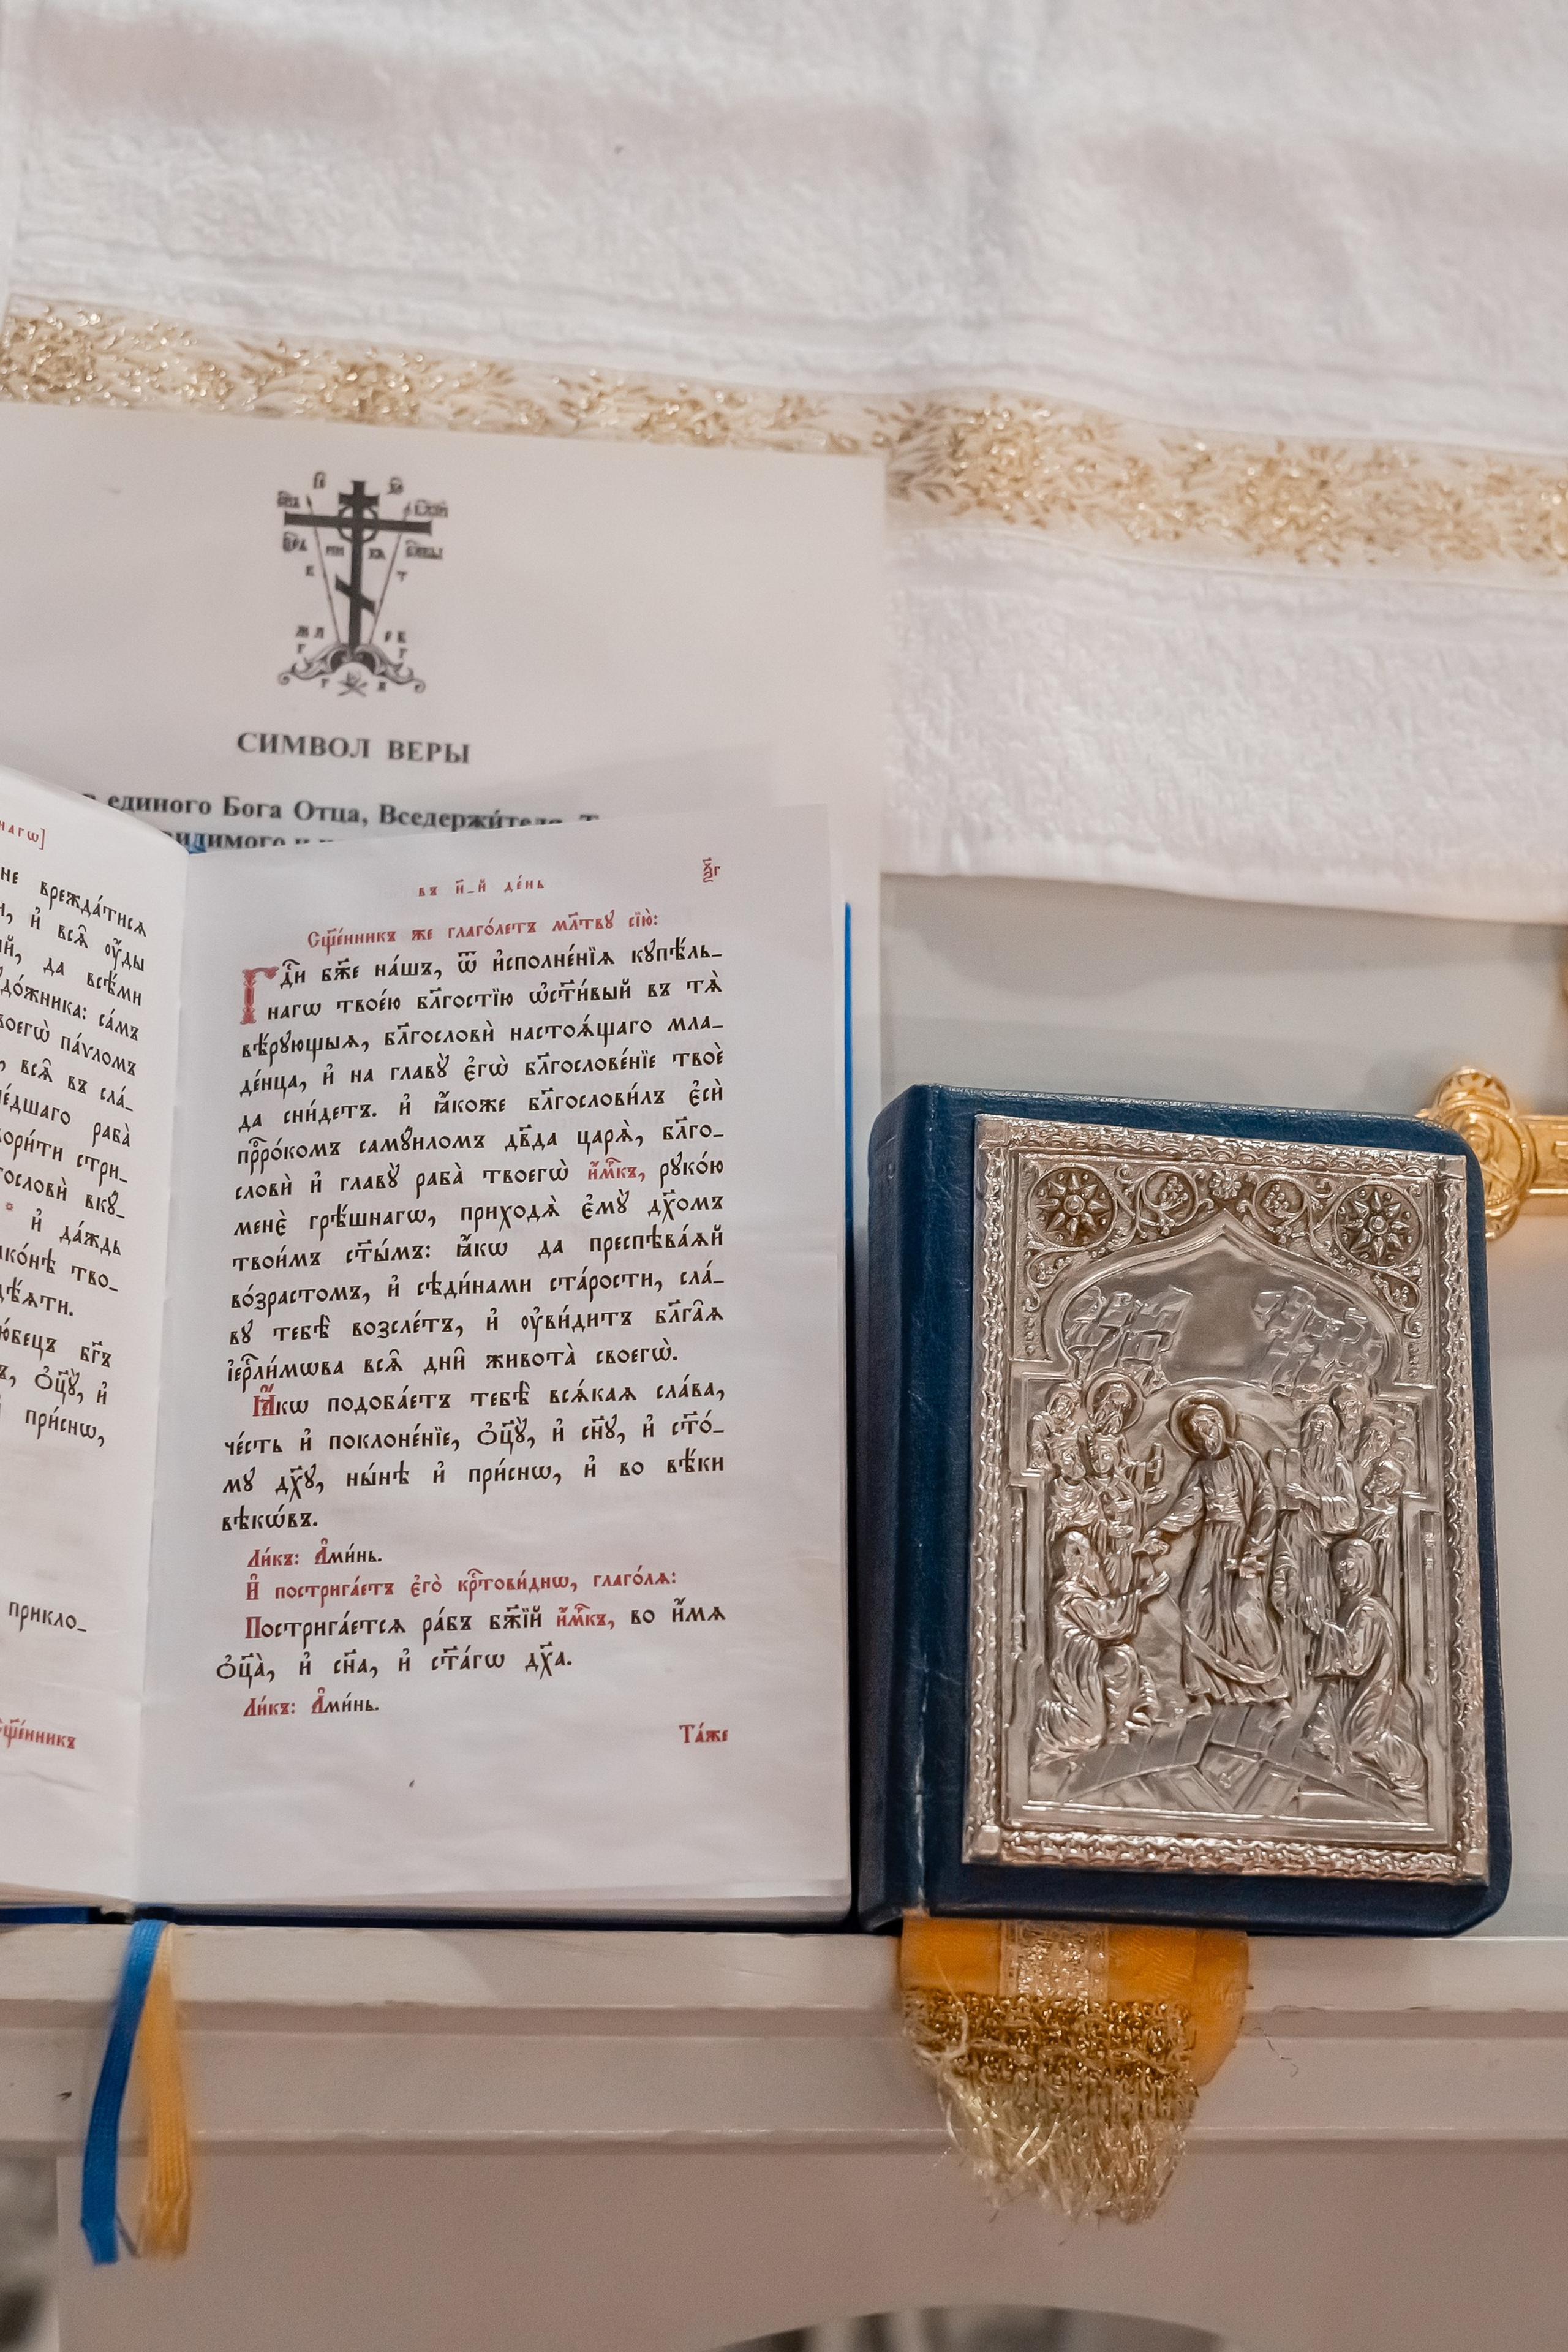 СИМВОЛ ВЕРЫ
единого Бога Отца, Вседержи́теля,
видимого и
наго]
не врежда́тисѧ
и҆ всѧ̑ ᲂу҆́ды
да всѣ́ми
до́жника: са́мъ
воегѡ̀ па́ѵломъ
всѧ̑ въ сла́_
ше́дшаго раба̀
вори́ти стри_
гословѝ вкꙋ́_
и҆ да́ждь
ако́нѣ тво_
дѣ́ѧти.
ю́бецъ бг҃ъ
ѻ҆ц҃ꙋ̀, и҆
при́снѡ,
прикло_
сщ҃е́нникъ
въ и҃_й де́нь
Сщ҃е́нникъ же глаго́летъ мл҃твꙋ сїю̀:
Гдⷭ҇и бж҃е на́шъ, ѿ и҆сполне́нїѧ кꙋпѣ́ль_
нагѡ твоє́ю бл҃гостїю ѡ҆ст҃и́вый въ тѧ̀
вѣ́рꙋющыѧ, бл҃гословѝ настоѧ́щаго мла_
де́нца, и҆ на главꙋ̀ є҆гѡ̀ бл҃гослове́нїе твоѐ
да сни́детъ. и҆ ꙗ҆́коже бл҃гослови́лъ є҆сѝ
прⷪ҇ро́комъ самꙋи́ломъ дв҃да царѧ̀, бл҃го_
словѝ и҆ главꙋ̀ раба̀ твоегѡ̀ и҆́мкъ, рꙋко́ю
менє̀ грѣ́шнагѡ, приходѧ̀ є҆мꙋ̀ дх҃омъ
твои́мъ ст҃ы́мъ: ꙗ҆́кѡ да преспѣва́ѧй
во́зрастомъ, и҆ сѣди́нами ста́рости, сла́_
вꙋ тебѣ̀ возсле́тъ, и҆ ᲂу҆ви́дитъ бл҃га̑ѧ
і҆ерⷭ҇ли́мѡва всѧ̑ дни̑ живота̀ своегѡ̀.
Ꙗ҆́кѡ подоба́етъ тебѣ̀ всѧ́каѧ сла́ва,
че́сть и҆ поклоне́нїе, ѻ҆ц҃ꙋ̀, и҆ сн҃ꙋ, и҆ ст҃о́_
мꙋ дх҃ꙋ, ны́нѣ и҆ при́снѡ, и҆ во вѣ́ки
вѣкѡ́въ.
Ли́къ: А҆ми́нь.
И҆ пострига́етъ є҆го̀ крⷭ҇тови́днѡ, глаго́лѧ:
Пострига́етсѧ ра́бъ бж҃їй и҆́мкъ, во и҆́мѧ
ѻ҆ц҃а̀, и҆ сн҃а, и҆ ст҃а́гѡ дх҃а.
Ли́къ: А҆ми́нь.
Та́же